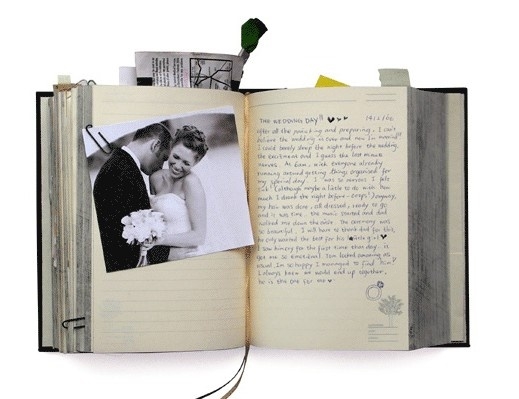 THE WEDDING DAY!!
after all the panicking and preparing, I can't
believe the wedding is over and now I'm married!
I could barely sleep the night before the wedding,
the excitement and I guess the last minute
nerves. At 8am, with everyone already
running around getting things organised for
my special day, I was so nervous I felt
sick! (although maybe a little to do with how
much I drank the night before - oops!) Anyway,
my hair was done, all dressed, ready to go
and it was time. the music started and dad
walked me down the aisle. The ceremony was
so beautiful, I will have to thank dad for this,
he only wanted the best for his little girl
I saw him for the first time that day. it
got me so emotional. Tom looked amazing as
usual. I'm so happy I managed to find him!
I always knew we would end up together,
he is the one for me